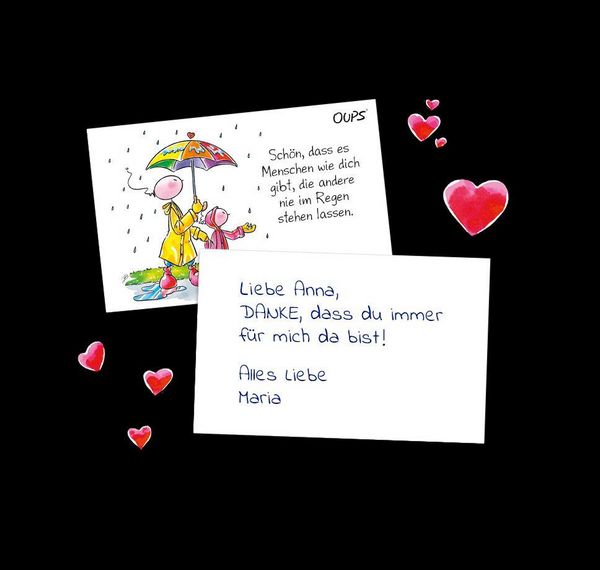 OUPS
Schön, dass es
Menschen wie dich
gibt, die andere
nie im Regen
stehen lassen.
Liebe Anna,
DANKE, dass du immer
für mich da bist!
Alles Liebe
Maria